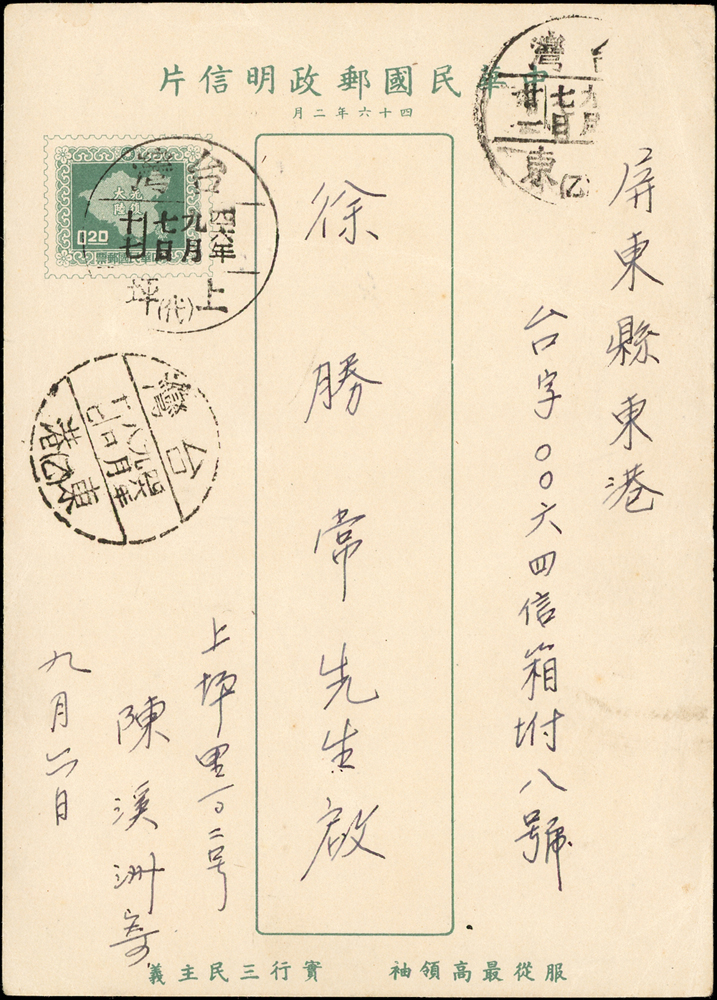 中華民國郵政明信片
四十六年二月
屏東縣東港
台字〇〇六四信箱坿八號
徐勝常先生啟
上坪里一〇二号
陳溪洲寄
九月六日
光復大陸
中華民國郵票
0.20
台灣
四六年九月七日十七
上坪(代)
台灣
九月七日廿一
東(乙)
台灣
四六年九月八日
東港(乙)
服從最高領袖
實行三民主義